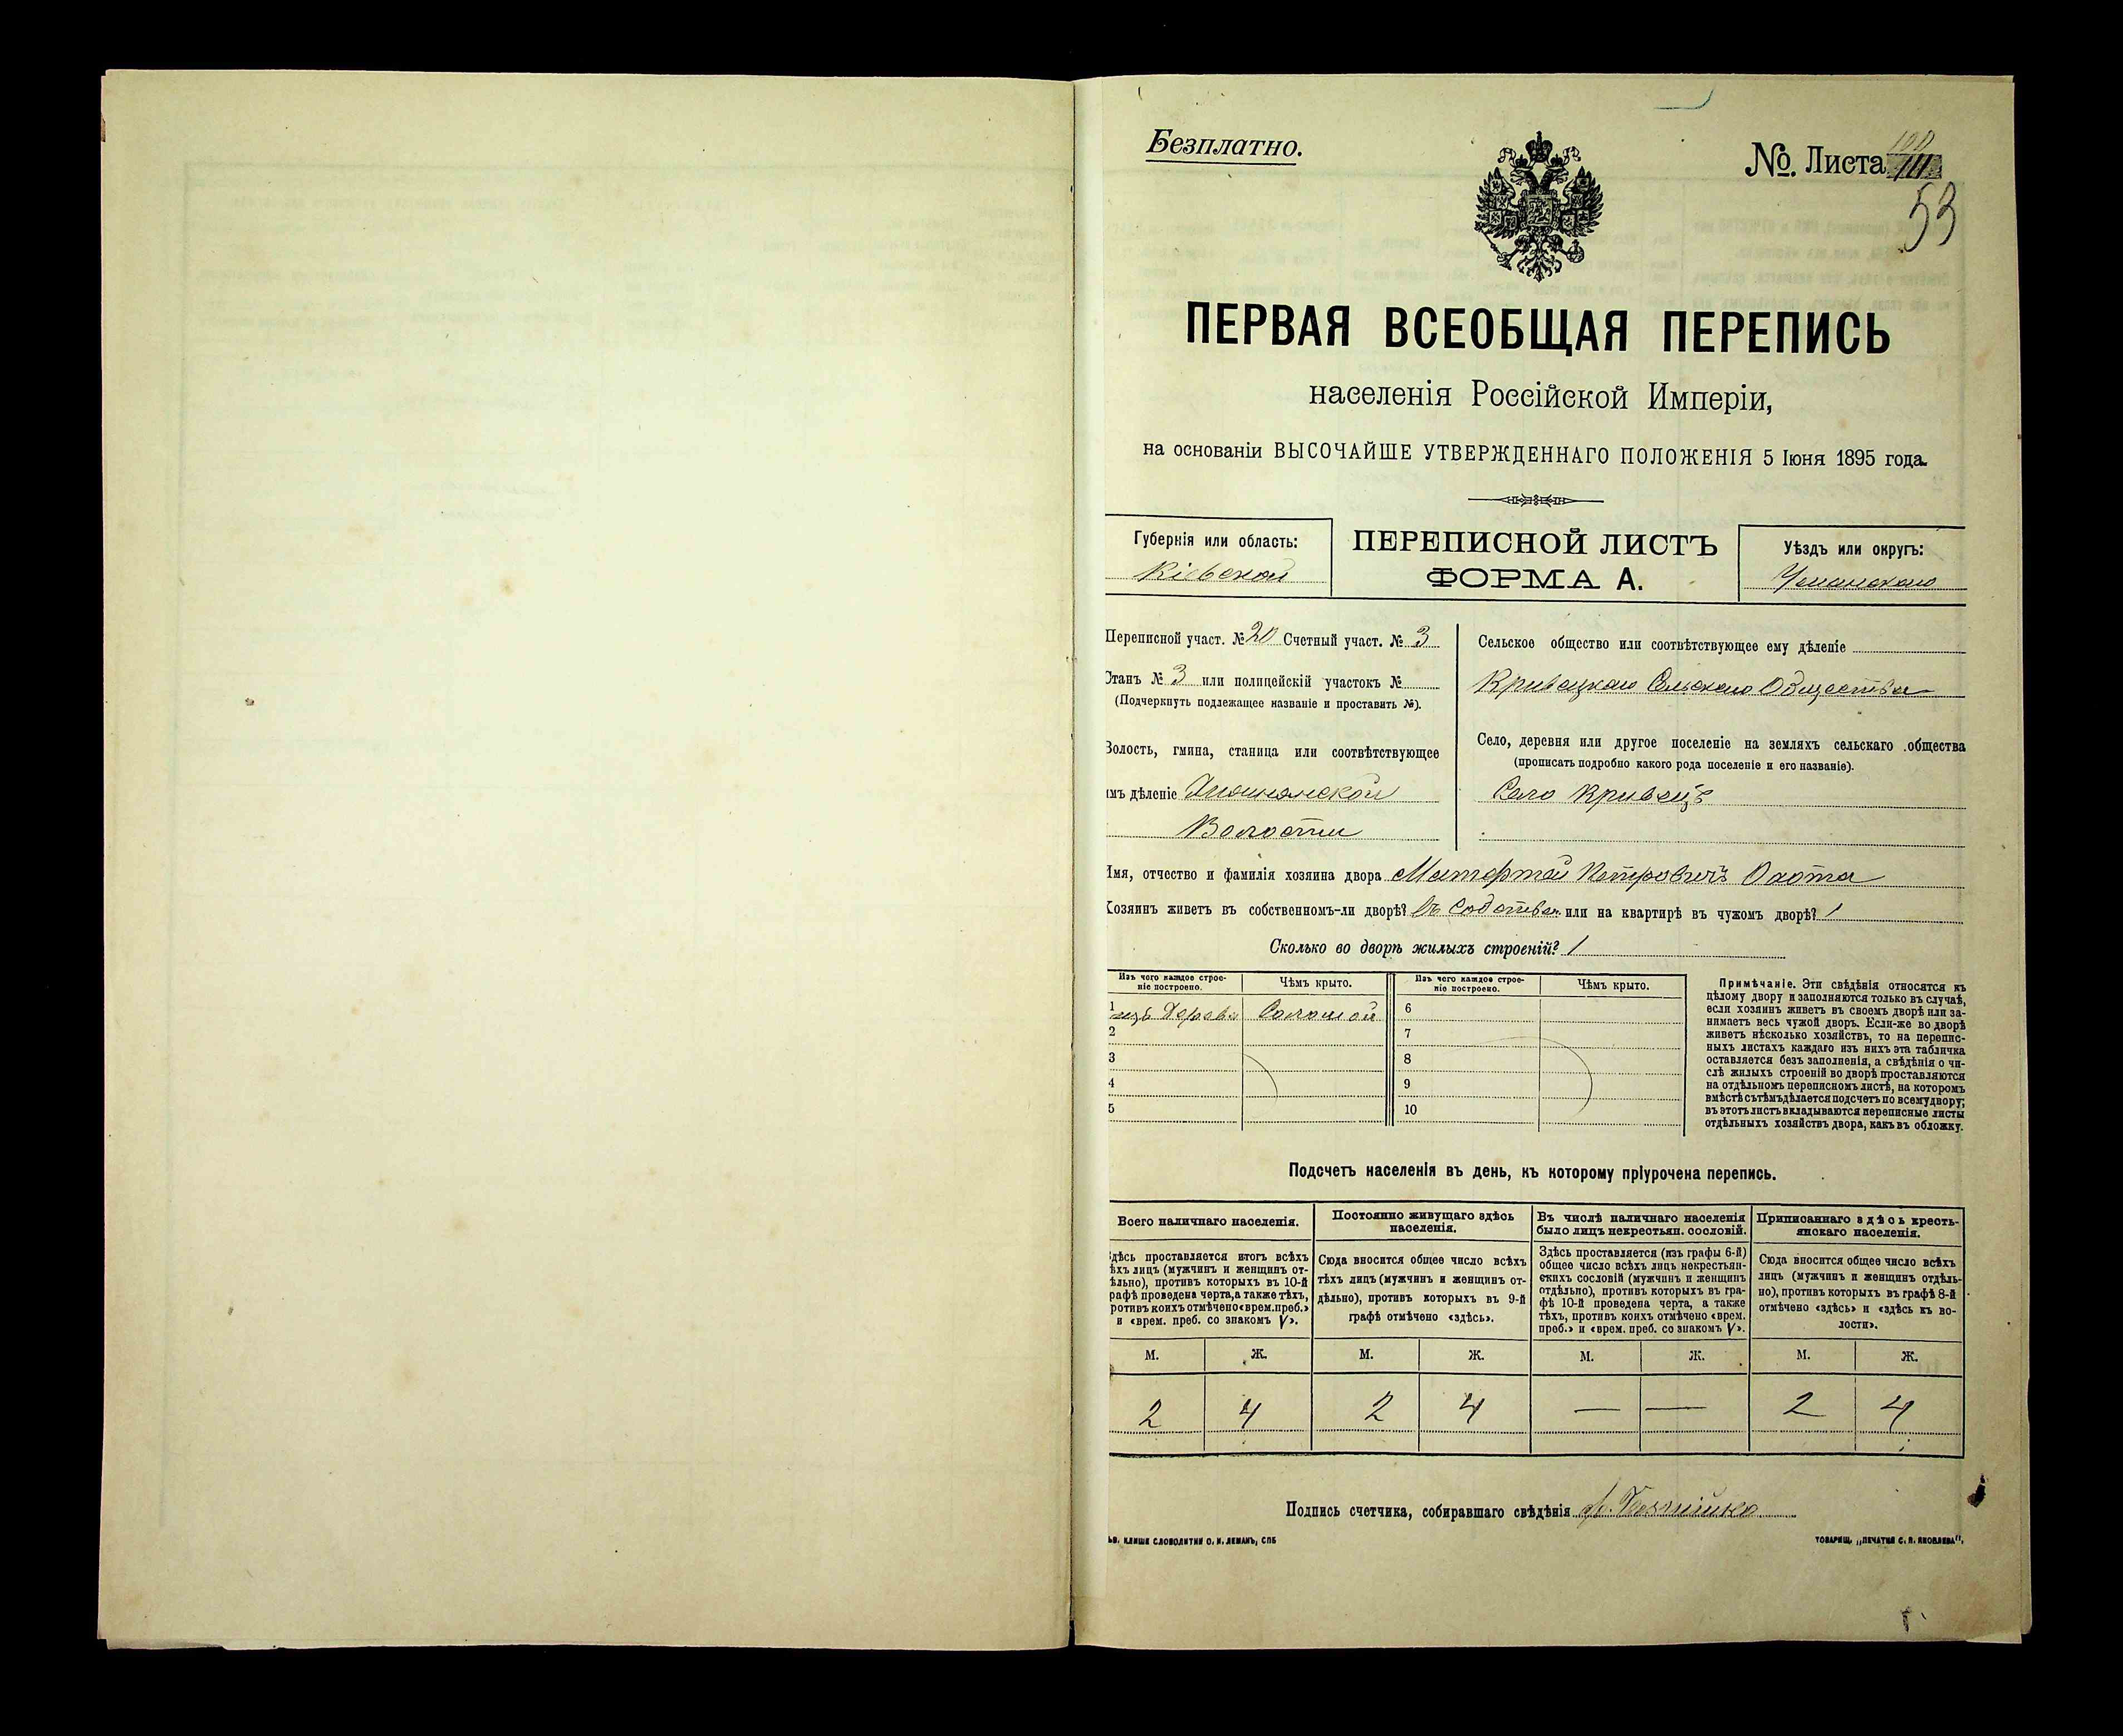 Безплатно.
№. Листа
53
ПЕРВАЯ ВСЕОБЩАЯ ПЕРЕПИСЬ
населенія Россійской Имперіи,
на основаніи ВЫСОЧАЙШЕ УТВЕРЖДЕННАГО ПОЛОЖЕНІЯ 5 Іюня 1895 года.
Губернія или область:
Кіевской
ПЕРЕПИСНОЙ ЛИСТЪ
ФОРМА А.
Уѣздъ или округъ:
Уманскаго
Переписной участ. № 20 Счетный участ. № 3
Станъ № 3 или полицейскій участокъ №
(Подчеркнуть подлежащее названіе и проставить №).
Волость, гмина, станица или соотвѣтствующее
имъ дѣленіе
Волости
Сельское общество или соотвѣтствующее ему дѣленіе
Кривецкаго Сельскаго Общества
Село, деревня или другое поселеніе на земляхъ сельскаго общества
(прописать подробно какого рода поселеніе и его названіе).
Село Кривецъ
Имя, отчество и фамилія хозяина двора Петровичъ Охота
Хозяинъ живетъ въ собственномъ-ли дворѣ? Въ или на квартирѣ въ чужомъ дворѣ? /
Сколько во дворѣ жилыхъ строеній? 1
Изъ чего каждое строе-
ніе построено.
Чѣмъ крыто.
Изъ чего каждое строе-
ніе построено.
Чѣмъ крыто.
1 изъ Дерева Соломой 6
2 7
3 8
4 9
5 10
Примѣчаніе. Эти свѣдѣнія относятся къ
цѣлому двору и заполняются только въ случаѣ,
если хозяинъ живетъ въ своемъ дворѣ или за-
нимаетъ весь чужой дворъ. Если-же во дворѣ
живетъ нѣсколько хозяйствъ, то на перепис-
ныхъ листахъ каждаго изъ нихъ эта табличка
оставляется безъ заполненія, а свѣдѣнія о чи-
слѣ жилыхъ строеній во дворѣ проставляются
на отдѣльномъ переписномъ листѣ, на которомъ
вмѣстѣ съ тѣмъ дѣлается подсчетъ по всему двору;
въ этотъ листъ вкладываются переписные листы
отдѣльныхъ хозяйствъ двора, какъ въ обложку.
Подсчетъ населенія въ день, къ которому пріурочена перепись.
Всего наличнаго населенія.
Здѣсь проставляется итогъ всѣхъ
тѣхъ лицъ (мужчинъ и женщинъ от-
дѣльно), противъ которыхъ въ 10-й
графѣ проведена черта, а также тѣхъ,
противъ коихъ отмѣчено «врем. преб.»
и «врем. преб. со знакомъ V».
Постоянно живущаго здѣсь
населенія.
Сюда вносится общее число всѣхъ
тѣхъ лицъ (мужчинъ и женщинъ от-
дѣльно), противъ которыхъ въ 9-й
графѣ отмѣчено «здѣсь».
Въ числѣ наличнаго населенія
было лицъ некрестьян. сословій.
Здѣсь проставляется (изъ графы 6-й)
общее число всѣхъ лицъ некрестьян-
скихъ сословій (мужчинъ и женщинъ
отдѣльно), противъ которыхъ въ гра-
фѣ 10-й проведена черта, а также
тѣхъ, противъ коихъ отмѣчено «врем.
преб.» и «врем. преб. со знакомъ V».
Приписаннаго здѣсь кресть-
янскаго населенія.
Сюда вносится общее число всѣхъ
лицъ (мужчинъ и женщинъ отдѣль-
но), противъ которыхъ въ графѣ 8-й
отмѣчено «здѣсь» и «здѣсь къ во-
лости».
М. Ж. М. Ж. М. Ж. М. Ж.
2 4 2 4 — — 2 4
Подпись счетчика, собиравшаго свѣдѣнія
КЛИШЕ СЛОВОЛИТНИ О. И. ЛЕМАНЪ, СПБ
ТОВАРИЩ. „ПЕЧАТНЯ С. П. ЯКОВЛЕВА“.